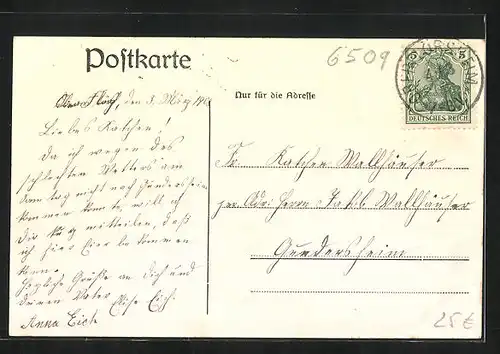 Postkarte
6509
Nur für die Adresse
DEUTSCHES REICH
5 5
Ober-Flörsh, den 3. März 190
Liebes Katchen!
Da ich wegen des
schlechten Wetters am
Sonntag nicht nach Gundersheim
kommen konnte, will ich
Dir kurz mitteilen, daß
ich hier Eier bekommen
kann.
Herzliche Grüße an Dich und
deinen Vater Elise Eich.
Anna Eich
Fr. Katchen Wallhäuser
per Adr. Herrn Jakob Wallhäuser
Gundersheim
25€